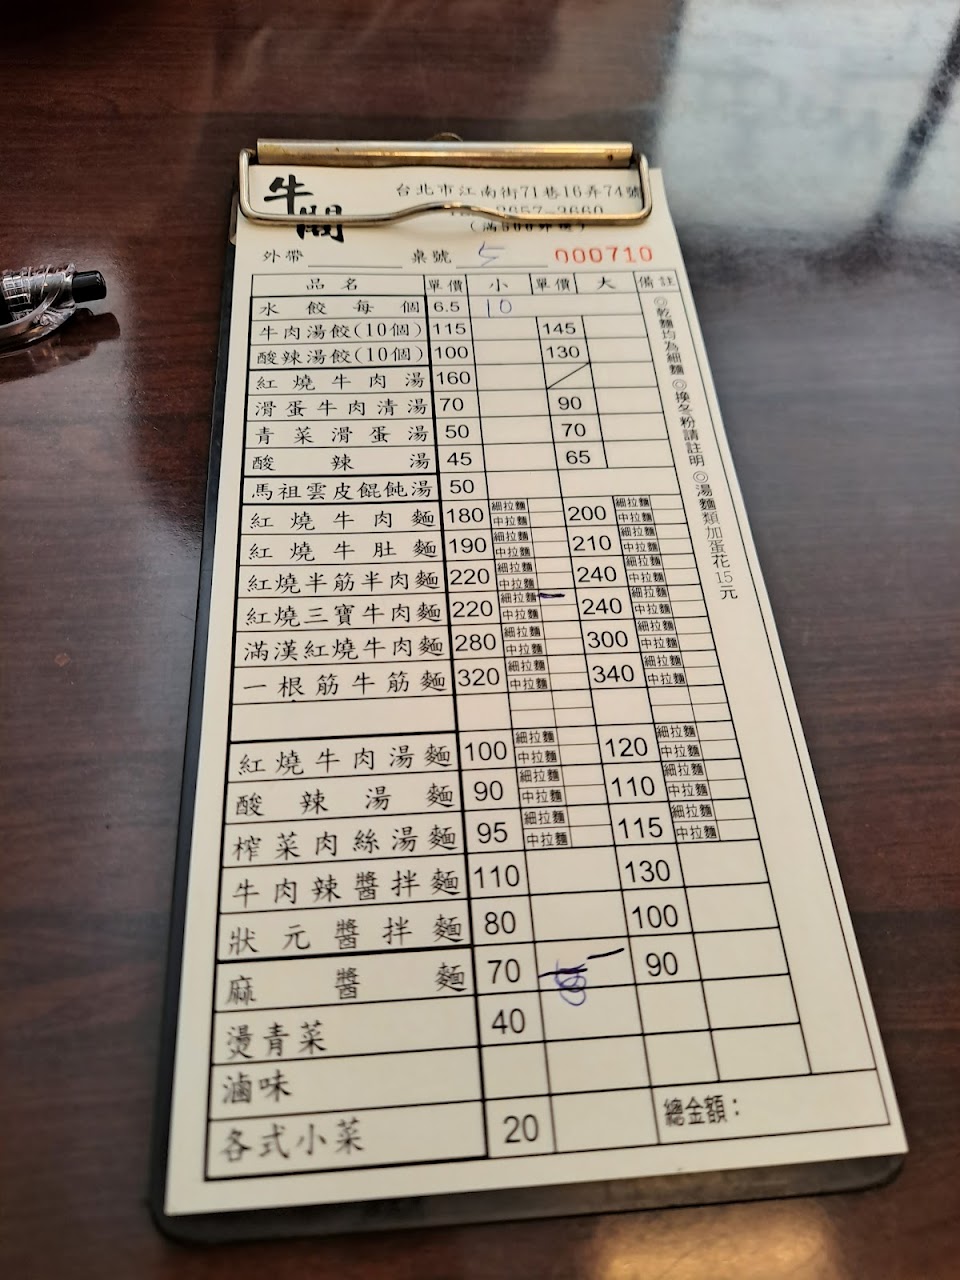 牛閣
台北市江南街71巷16弄74號
2657-3660
(滿500外送)
外帶 桌號 5 000710
品名 單價 小 單價 大 備註
水餃每個 6.5 10
牛肉湯餃(10個) 115 145
酸辣湯餃(10個) 100 130
紅燒牛肉湯 160
滑蛋牛肉清湯 70 90
青菜滑蛋湯 50 70
酸辣湯 45 65
馬祖雲皮餛飩湯 50
紅燒牛肉麵 180 細拉麵 中拉麵 200 細拉麵 中拉麵
紅燒牛肚麵 190 細拉麵 中拉麵 210 細拉麵 中拉麵
紅燒半筋半肉麵 220 細拉麵 中拉麵 240 細拉麵 中拉麵
紅燒三寶牛肉麵 220 細拉麵 中拉麵 240 細拉麵 中拉麵
滿漢紅燒牛肉麵 280 細拉麵 中拉麵 300 細拉麵 中拉麵
一根筋牛筋麵 320 細拉麵 中拉麵 340 細拉麵 中拉麵
紅燒牛肉湯麵 100 細拉麵 中拉麵 120 細拉麵 中拉麵
酸辣湯麵 90 細拉麵 中拉麵 110 細拉麵 中拉麵
榨菜肉絲湯麵 95 細拉麵 中拉麵 115 細拉麵 中拉麵
牛肉辣醬拌麵 110 130
狀元醬拌麵 80 100
麻醬麵 70 90
燙青菜 40
滷味
各式小菜 20
總金額：
◎乾麵均為細麵 ◎換冬粉請註明 ◎湯麵類加蛋花15元